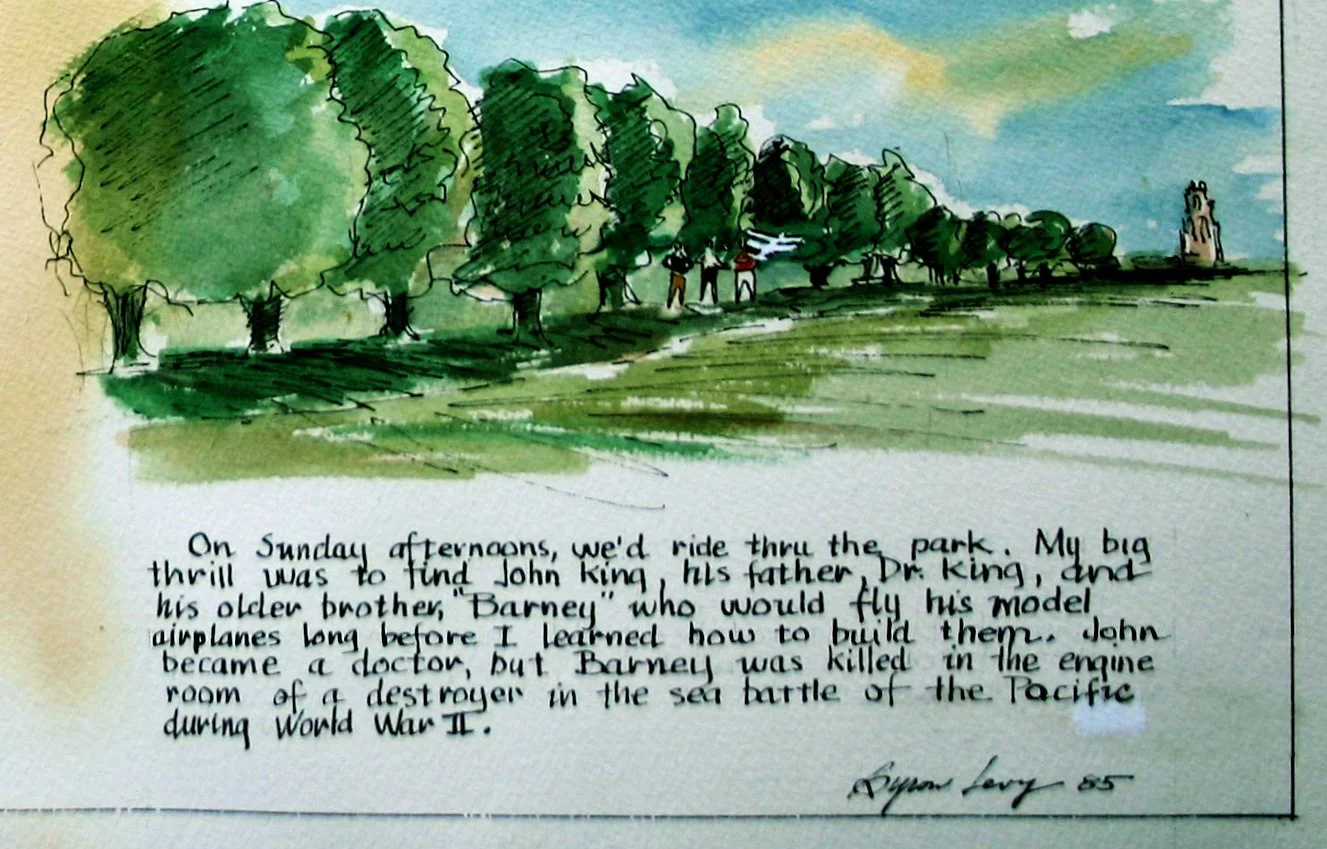 On Sunday afternoons, we'd ride thru the park. My big
thrill was to find John King, his father, Dr. King, and
his older brother, "Barney" who would fly his model
airplanes long before I learned how to build them. John
became a doctor, but Barney was killed in the engine
room of a destroyer in the sea battle of the Pacific
during World War II.
Byron Levy 85